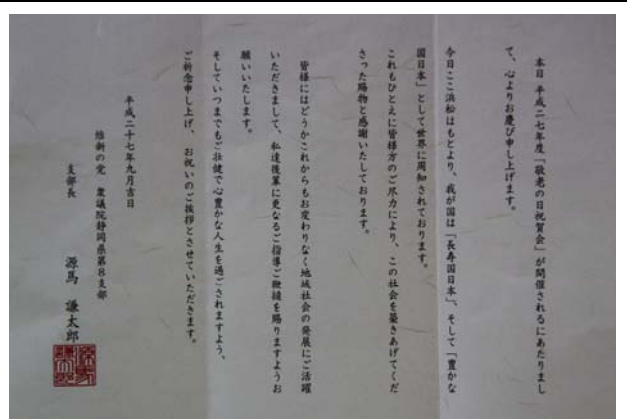 本日 平成二七年度「敬老の日祝賀会」が開催されるにあたりまし
て、心よりお慶び申し上げます。
今日ここ浜松はもとより、我が国は「長寿国日本」、そして「豊かな
国日本」として世界に周知されております。
これもひとえに皆様方のご尽力により、この社会を築きあげてくだ
さった賜物と感謝いたしております。
皆様にはどうかこれからもお変わりなく地域社会の発展にご活躍
いただきまして、私達後輩に更なるご指導ご鞭撻を賜りますようお
願いいたします。
そしていつまでもご壮健で心豊かな人生を過ごされますよう、
ご祈念申し上げ、お祝いのご挨拶とさせていただきます。
平成二十七年九月吉日
維新の党 衆議院静岡県第8支部
支部長 源馬 謙太郎